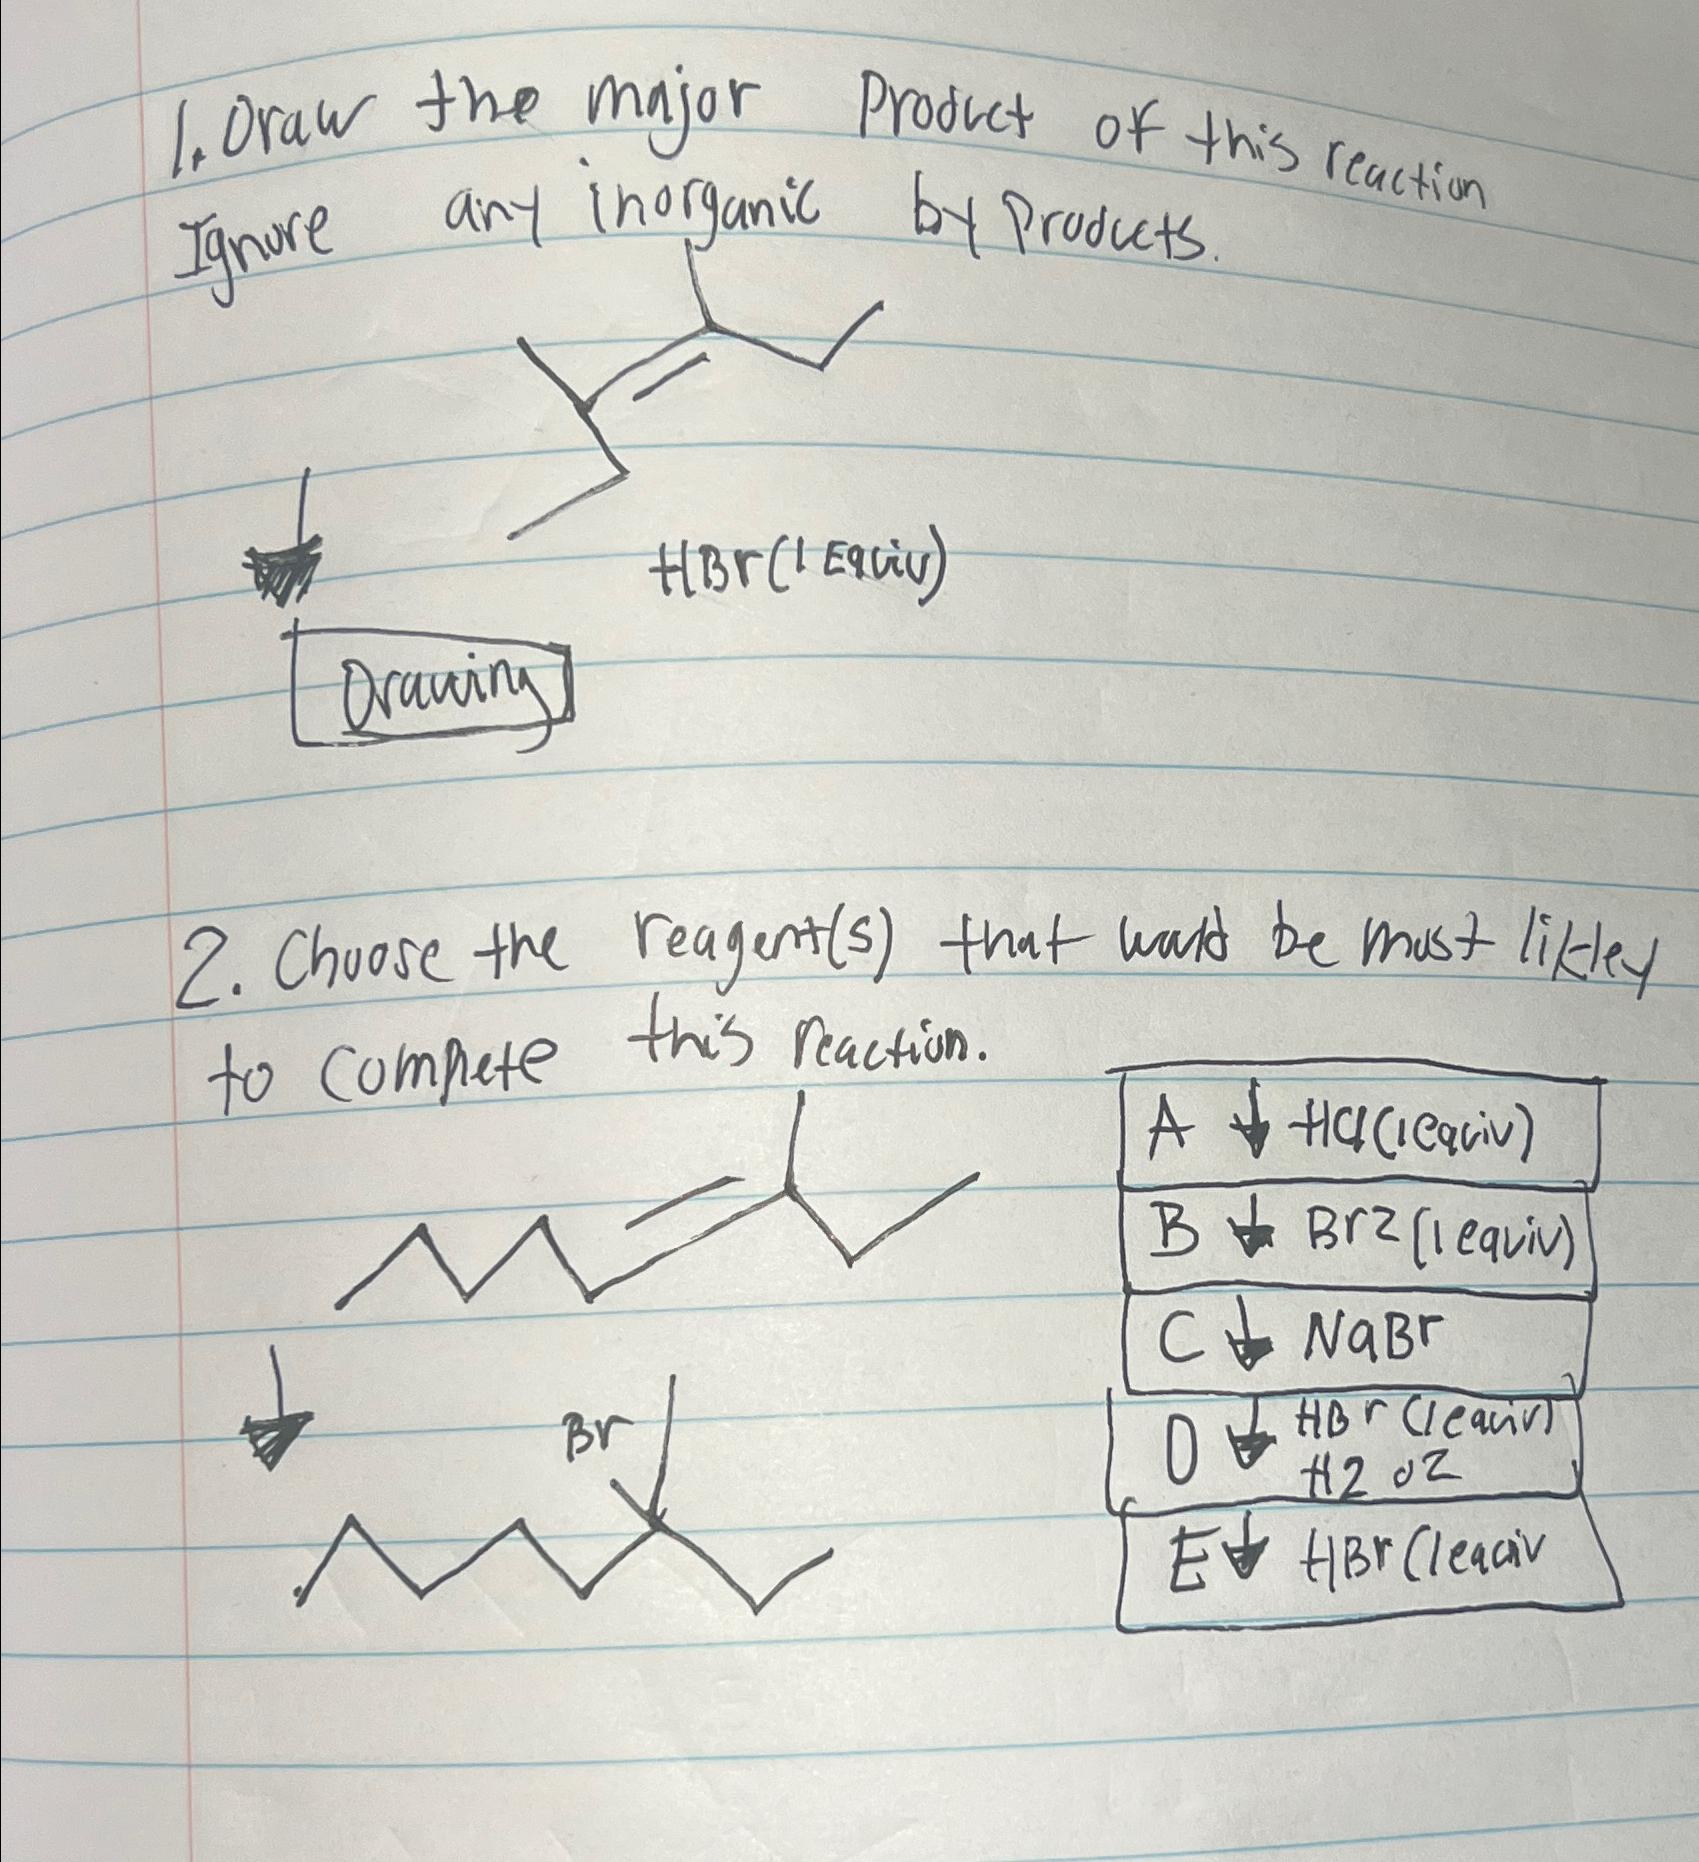 1. Draw the major Product of this reaction
Ignore any inorganic by Products.
HBr (1 Equiv)
Drawing
2. Choose the reagent(s) that would be most likley
to complete this reaction.
A ↓ HCl (1 equiv)
B ↓ Br2 (1 equiv)
C ↓ NaBr
D ↓ HBr (1 equiv)
H2 O2
E ↓ HBr (1 equiv
Br